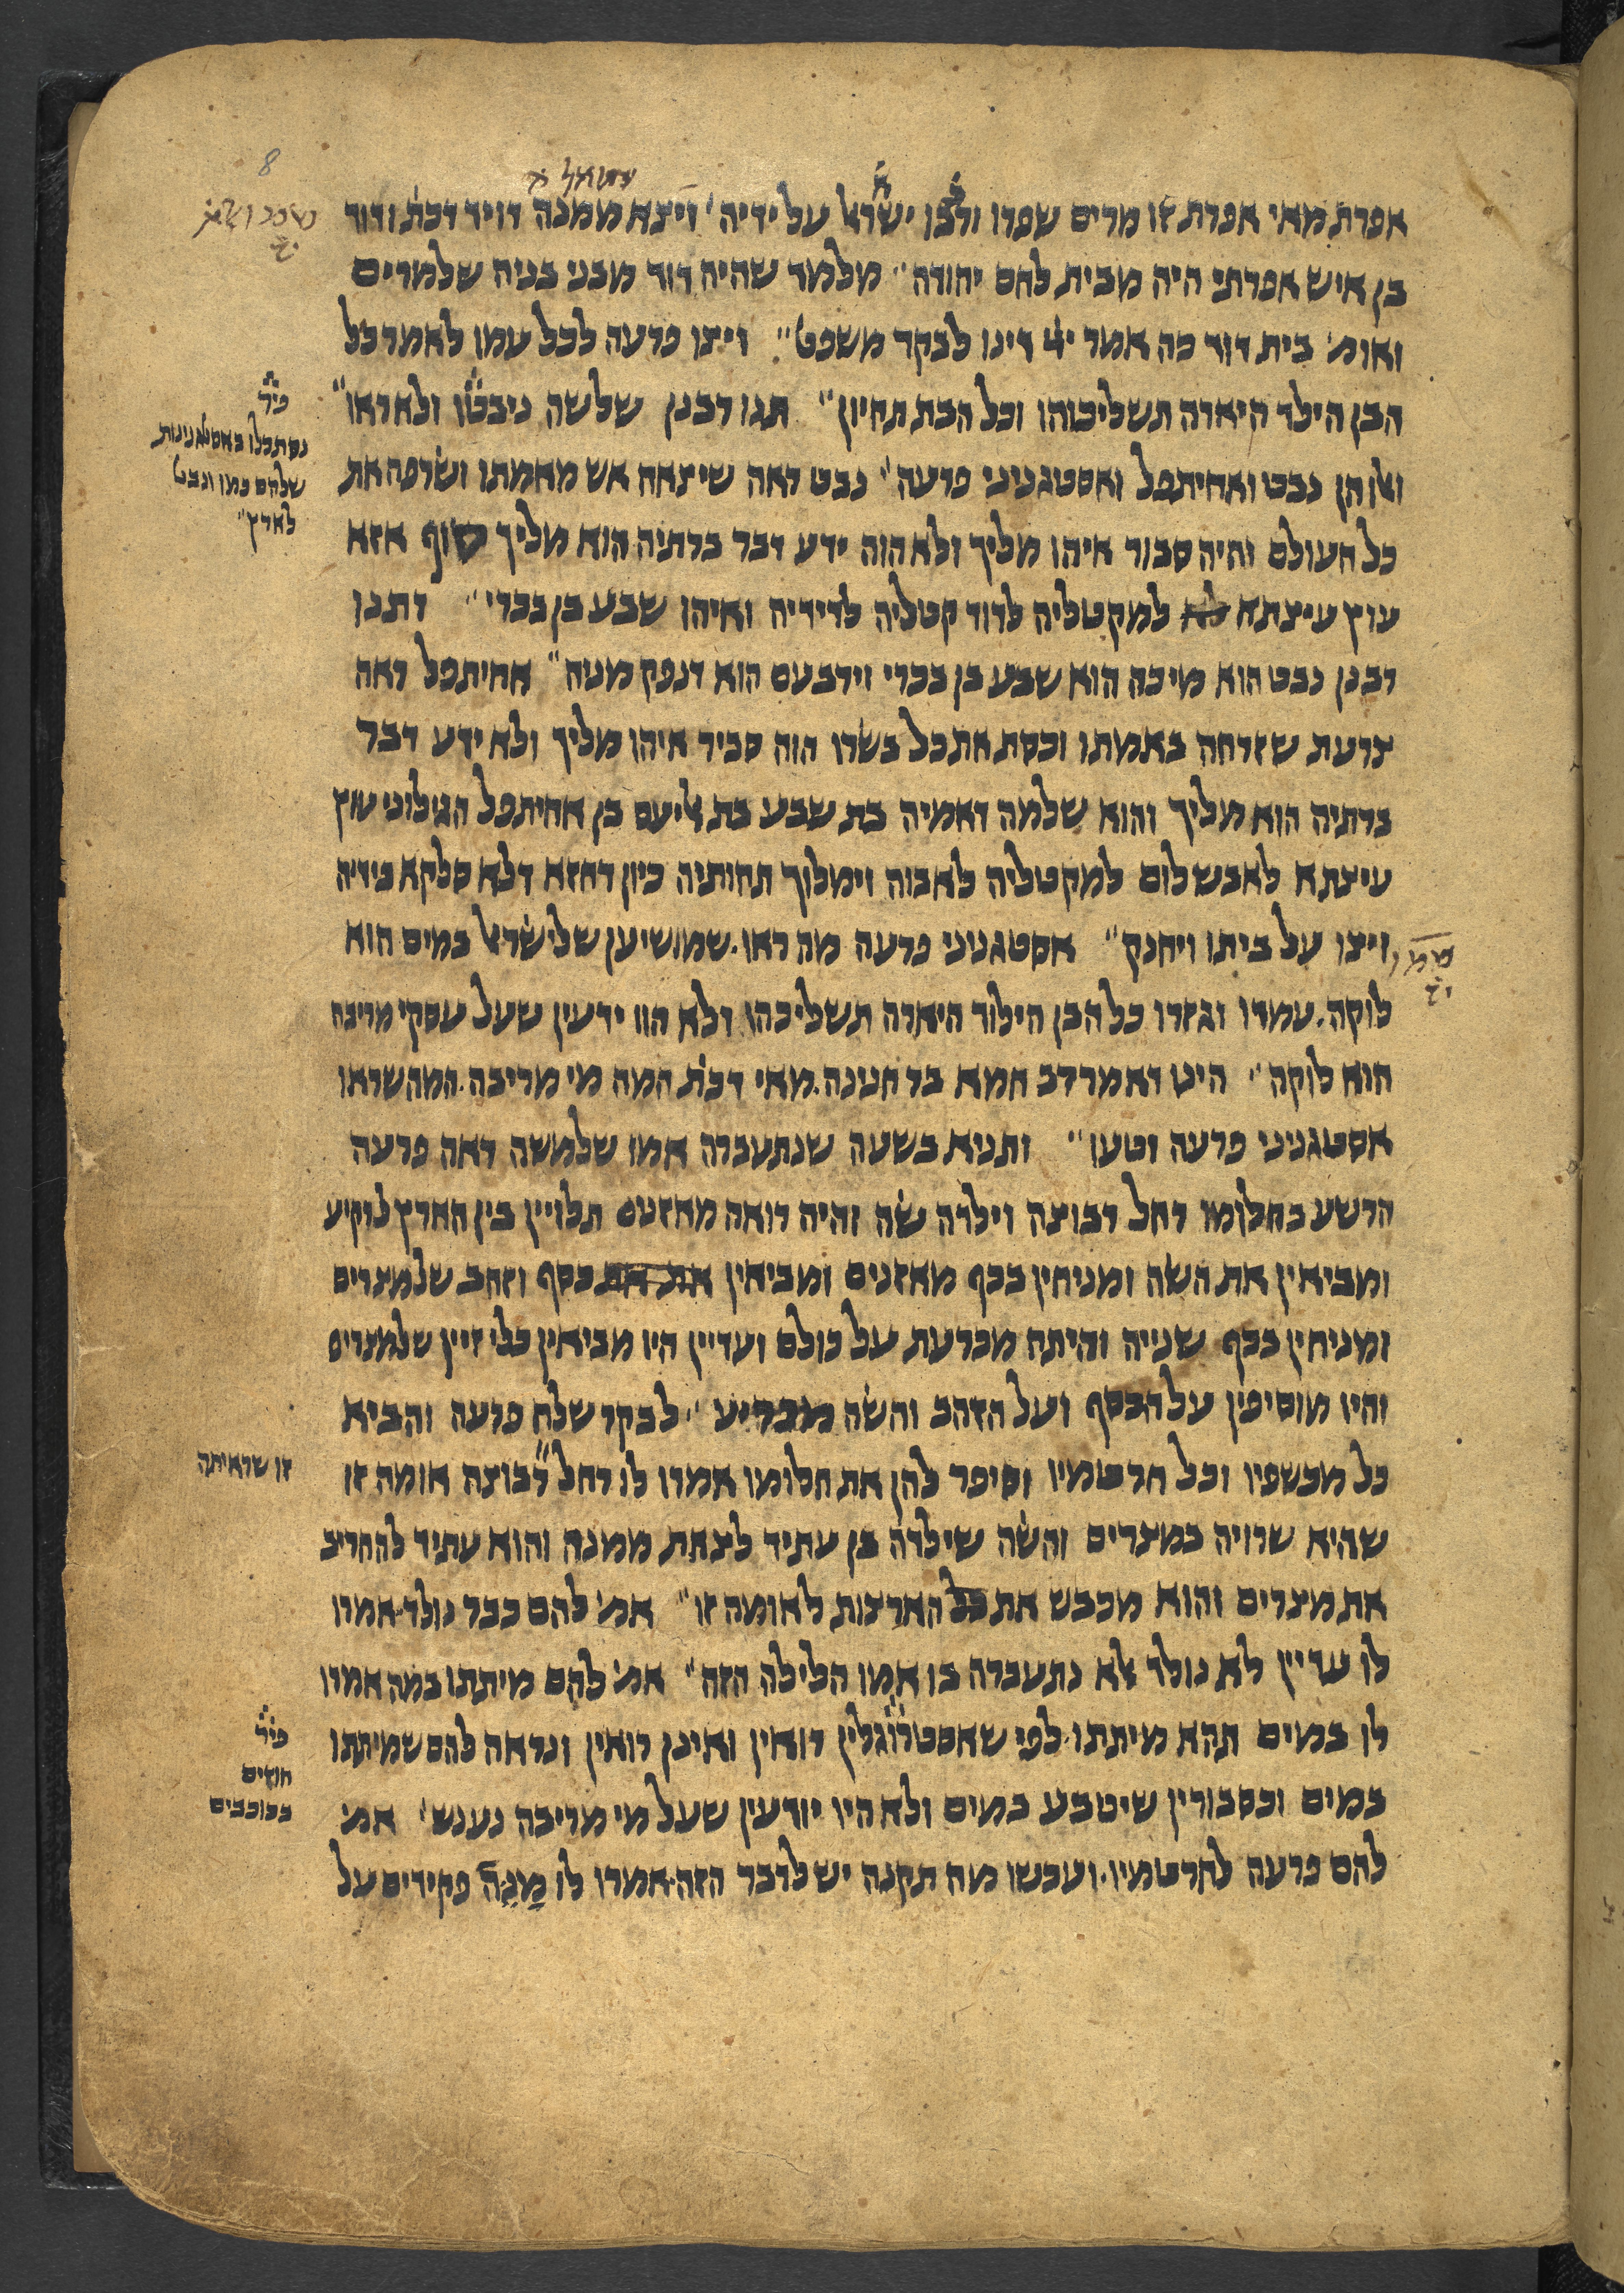 8
אפרת מאי אפרת זו מרים שפרו ורבו ישראל על ידיה׳ ויצא ממנה דויד דכת׳ ודוד
בן איש אפרתי היה מבית לחם יהודה״ מלמד שהיה דוד מבני בניה שלמרים
ואומ׳ בית דוד כה אמר ייי דינו לבקר משפט״ ויצו פרעה לכל עמו לאמר כל
הבן הילד היארה תשליכוהו וכל הבת תחיון״ תנו רבנן שלשה ניבטו ולא ראו״
ואלו הן נבט ואחיתפל ואסטגניני פרעה׳ נבט ראה שיצאה אש מאמתו ושרפה את
כל העולם והיה סבור איהו מליך ולא הוה ידע דבר ברתיה הוא מליך סוף אזא
עוץ עיצתא למקטליה לדוד קטליה לדידיה ואיהו שבע בן בכרי״ דתנו
רבנן נבט הוא מיכה הוא שבע בן בכרי וירבעם הוא דנפק מניה״ אחיתפל ראה
צרעת שזרחה באמתו וכסת את כל בשרו הוה סביר איהו מליך ולא ידע דבר
ברתיה הוא מליך והוא שלמה דאמיה בת שבע בת אליעם בן אחיתפל הגילוני עוץ
עיצתא לאבשלום למקטליה לאבוה וימלוך תחותיה כיון דחזא דלא סלקא בידיה
ויצו על ביתו ויחנק״ אסטגניני פרעה מה ראו. שמושיען שלישראל במים הוא
לוקה. עמדו וגזרו כל הבן הילוד היארה תשליכהו ולא הוו ידעין שעל עסקי מריבה
הוא לוקה״ היינו דאמר רב חמא בר חנינה. מאי דכת׳ המה מי מריבה. המה שראו
אסטגניני פרעה וטעו״ ותניא בשעה שנתעברה אמו שלמשה ראה פרעה
הרשע בחלומו רחל רבוצה וילדה שה והיה רואה מאזנים תלויין בין הארץ לרקיע
ומביאין את השה ומניחין בכף מאזנים ומביאין כסף וזהב שלמצרים
ומניחין בכף שנייה והיתה מכרעת על כולם ועדיין היו מביאין כלי זיין שלמצרים
והיו מוסיפין על הכסף ועל הזהב והשה מכריע״ לבקר שלח פרעה והביא
כל מכשפיו וכל חרטמיו וסיפר להן את חלומו אמרו לו רחל רבוצה אומה זו
שהיא שרויה במצרים והשה שילדה בן עתיד לצאת ממנה והוא עתיד להחריב
את מצרים והוא מכבש את כל הארצות לאומה זו״ אמ׳ להם כבר נולד. אמרו
לו עדיין לא נולד אלא נתעברה בו אמו הלילה הזה״ אמ׳ להם מיתתו במה אמרו
לו במים תהא מיתתו. לפי שאסטרוגלין רואין ואינן רואין ונראה להם שמיתתו
במים וכסבורין שיטבע במים ולא היו יודעין שעל מי מריבה נענש׳ אמ׳
להם פרעה לחרטמיו. ועכשו מה תקנה יש לדבר הזה. אמרו לו מנה פקידים על
פיר׳
נסתכלו באסטגנינות
שלהם כמו ונבט
לארץ״
זו שראיתה
פיר׳
חוזים
בכוכבים